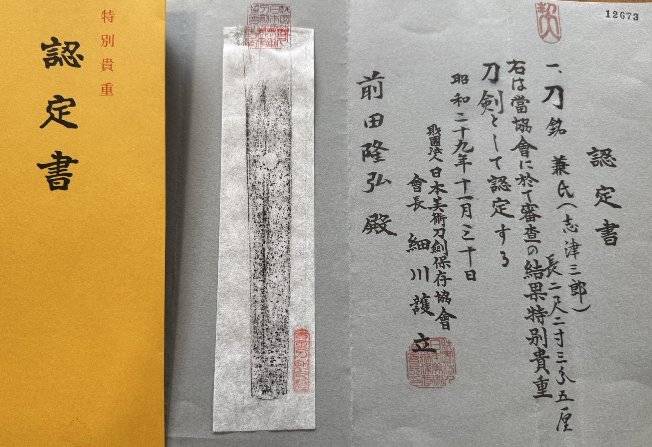 特別貴重
認定書
12673
認定書
一、刀 銘 兼氏(志津三郎)
長二尺二寸三分五厘
右は當協會に於て審査の結果特別貴重
刀劍として認定する
昭和二十九年十一月三十日
財團法人日本美術刀劍保存協會
會長 細川護立
前田隆弘殿